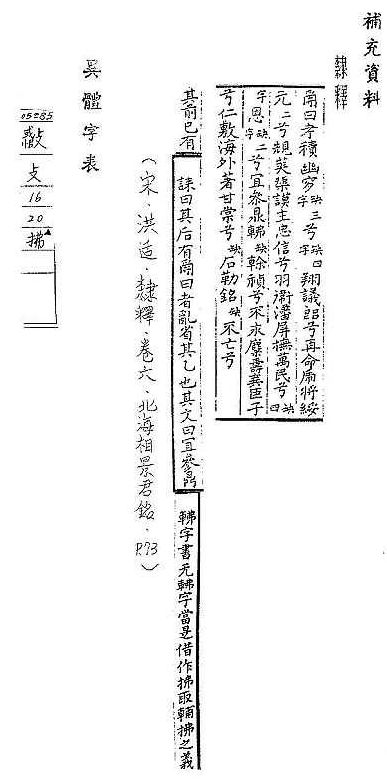 補充資料
隸釋
𠷎曰孝積幽穸缺三字兮缺四字翔議郎兮再命虎將綏
元二兮規英槩謨主忠信兮羽衛藩屏撫萬民兮缺四
字恩缺二字兮宜參鼎䡟缺幹禎兮不永麋壽棄臣子
兮仁敷海外著甘棠兮缺石勒銘缺不亡兮
其前已有
誄曰其后有𠷎曰者亂省其乙也其文曰宜參鼎
䡟字書无䡟字當是借作拂取輔拂之義
(宋.洪适.隸釋.卷六.北海相景君銘.P.93)
異體字表
05285
攴
16
20
拂